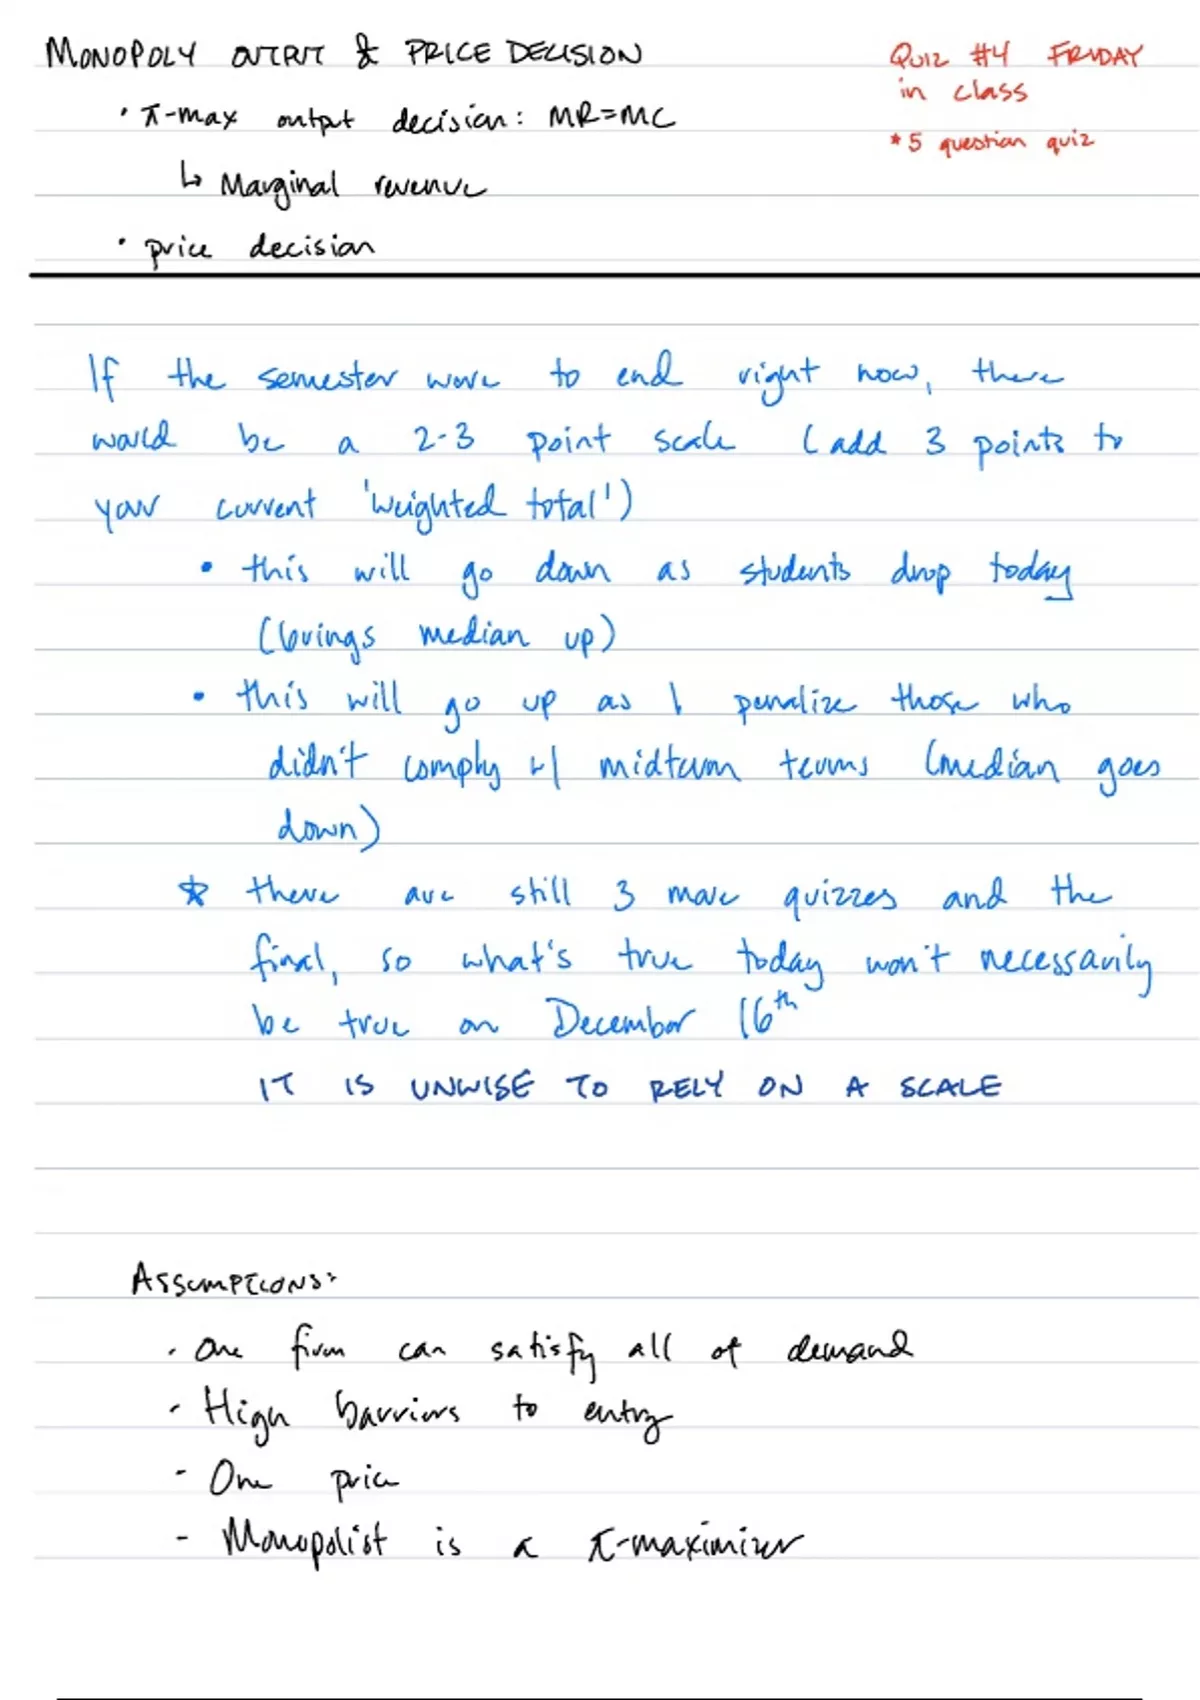 MONOPOLY OUTPUT & PRICE DECISION
QUIZ #4 FRIDAY
in class
* 5 question quiz
• π-max output decision: MR=MC
↳ Marginal revenue
• price decision
If the semester were to end right now, there
would be a 2-3 point scale (add 3 points to
your current 'weighted total')
• this will go down as students drop today
(brings median up)
• this will go up as I penalize those who
didn't comply w/ midterm terms (median goes
down)
* there are still 3 more quizzes and the
final, so what's true today won't necessarily
be true on December 16th
IT IS UNWISE TO RELY ON A SCALE
ASSUMPTIONS:
· One firm can satisfy all of demand
· High barriers to entry
- One price
- Monopolist is a π-maximizer